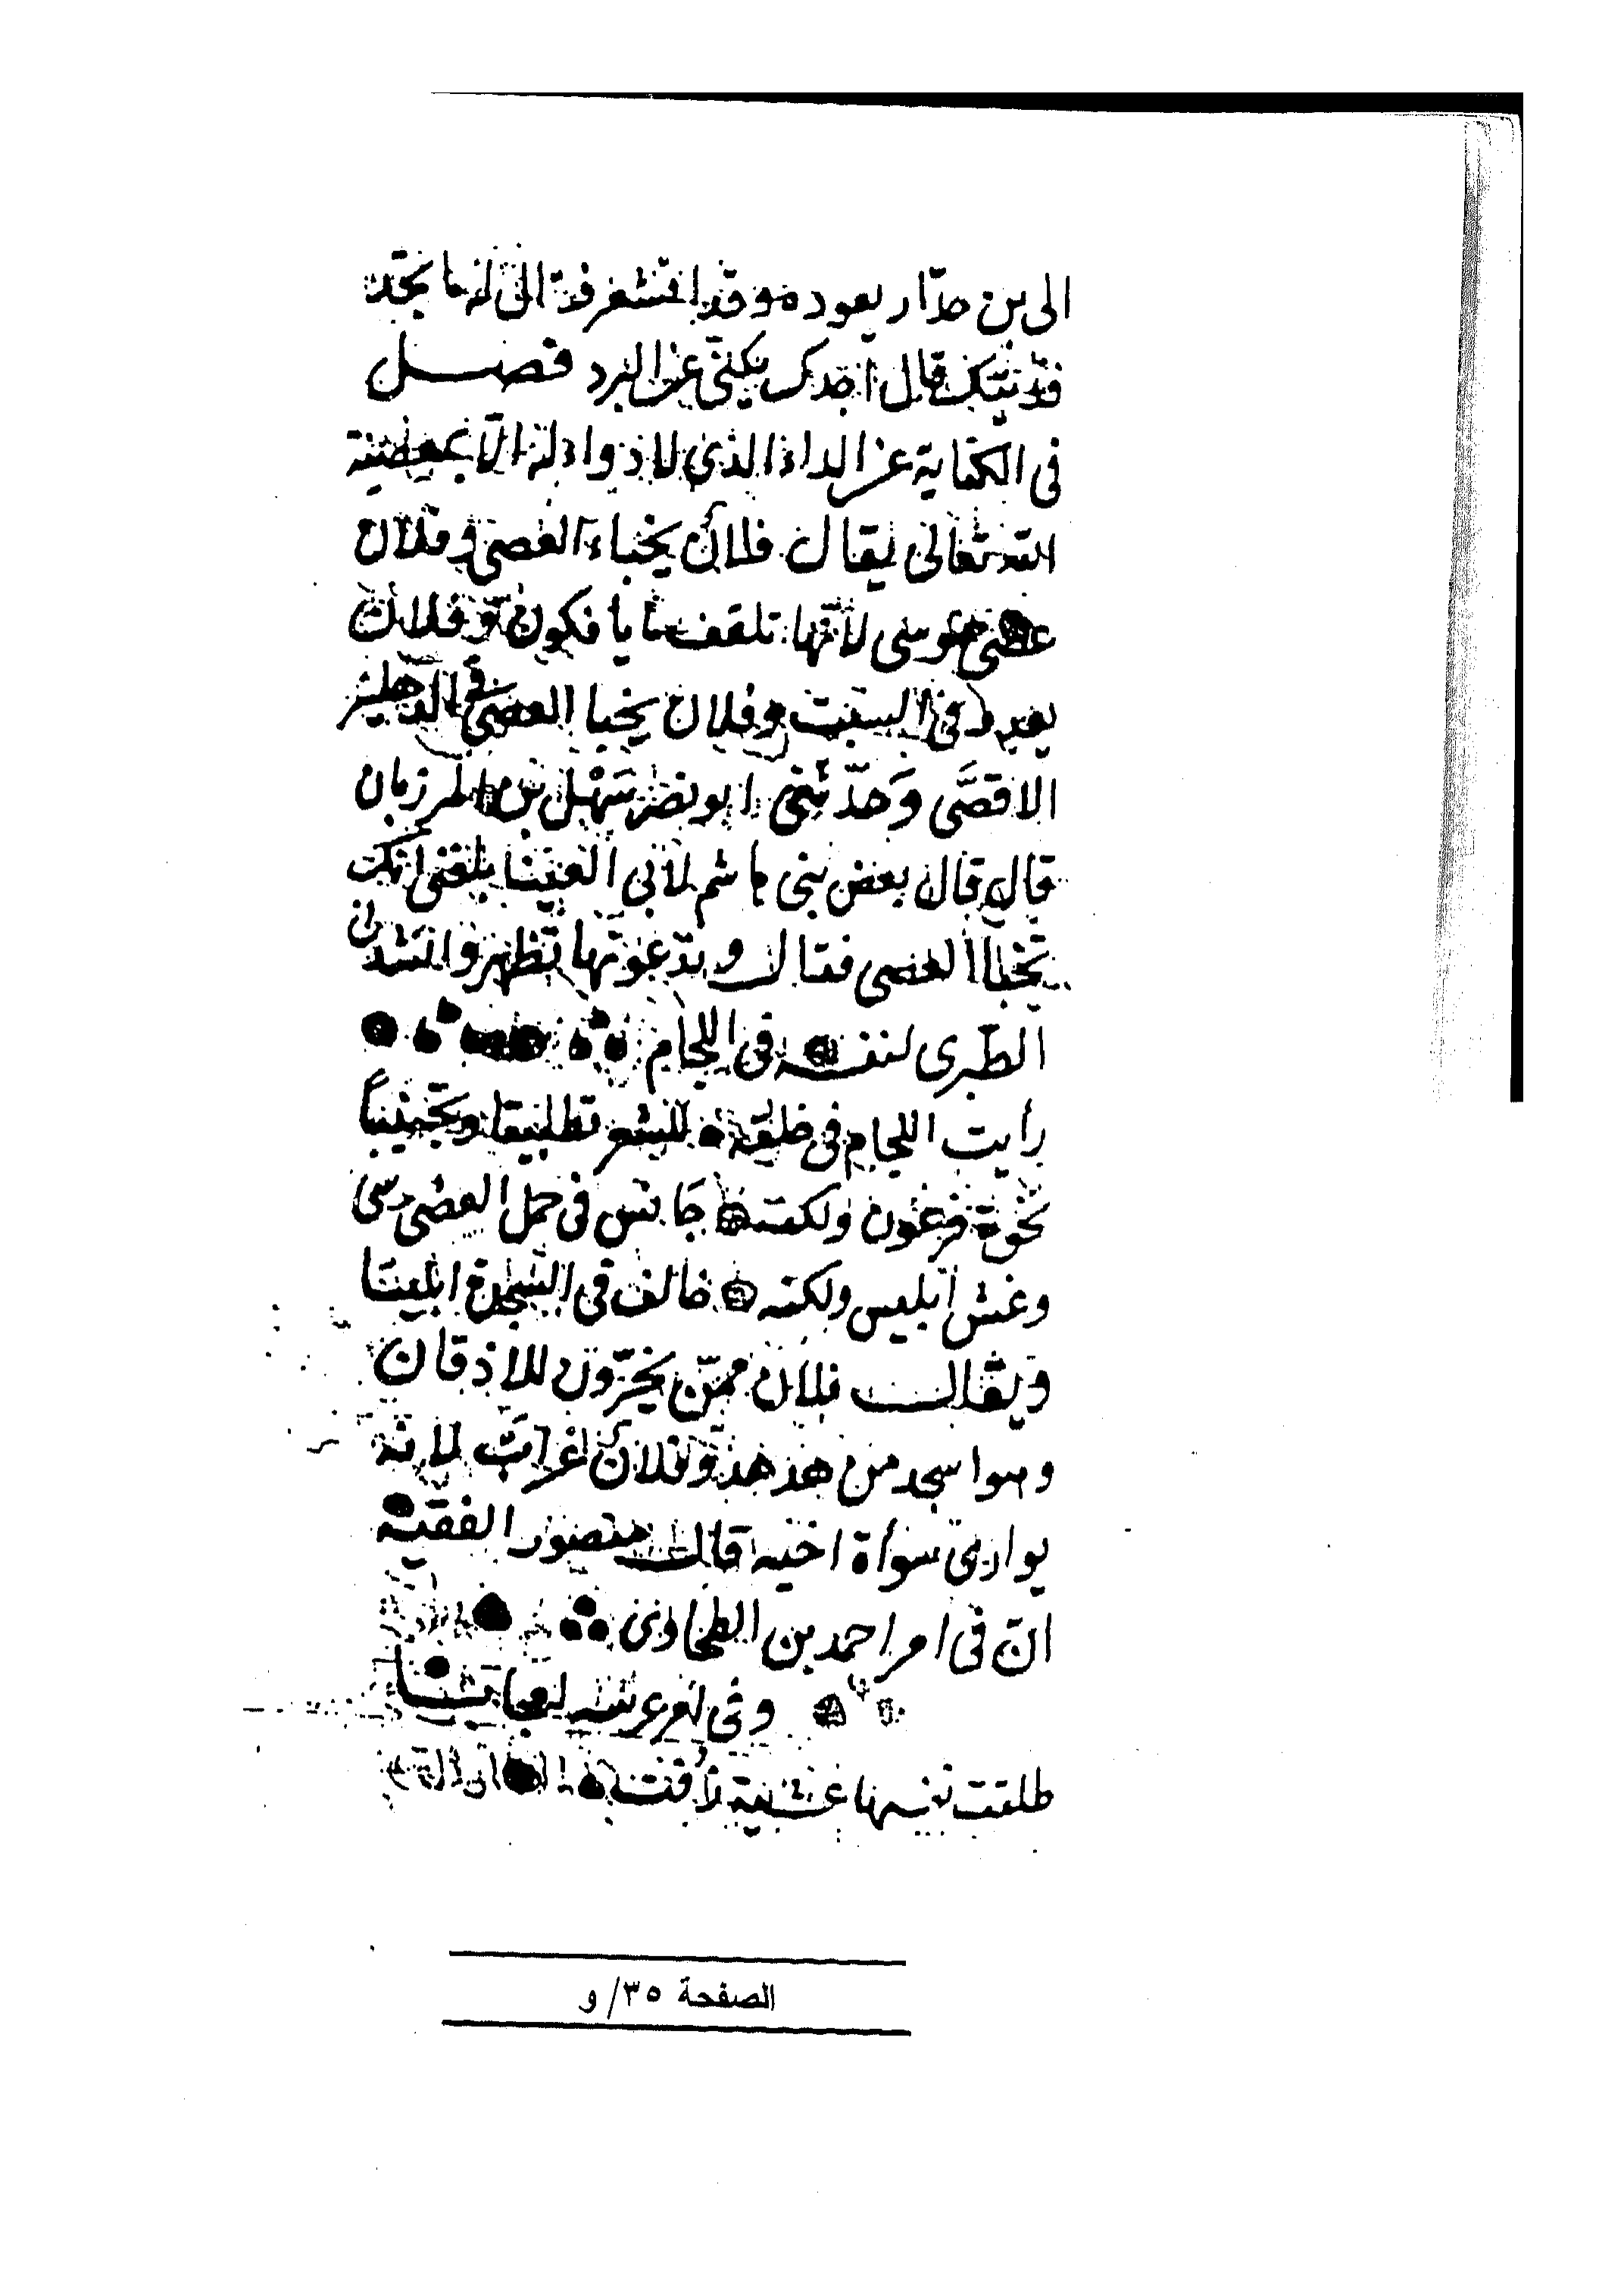 الى بن حدّار يعوده وقد اقشعر فقال له ما تجد
فديتك قال اجدك يكنى عن البرد فصل
فى الكناية عن الداء الذى لا دواء له الّا بمعصية
الله تعالى يقال فلان يخباء العصى و فلان
عصى موسى لأنّها تلقف ما يأفكون و فلان
يعدو فى السبت و فلان يخبا العصى فى الدهليز
الاقصَى وَحدّثنى ابو نصر سَهْل بن المرزبان
قال قال بعض بنى هاشم لأبى العينا بلغنى انك
تخبأ العصى فقال وتدعونها تظهر وانشدنى
الطبرى لنفسه فى اللحام
رأيت اللحام فى حلقه للشعر تطبيقا وتجنيساً
نخوة فرعون ولكنه جانس فى حمل العصى موسى
وغش ابليس ولكنه خالف فى السجدة ابليسا
ويقال فلان ممّن يخرّون للاذقان
وهو اسجد من هدهد وفلان غراب لانه
يوارى سوأة اخيه قال منصور الفقيه
انّ فى امر احمد بن الطحاوى
وفى امر عرسه لعجائبا
طلقت نفسها عشية زفت
الصفحة ٣٥/ و